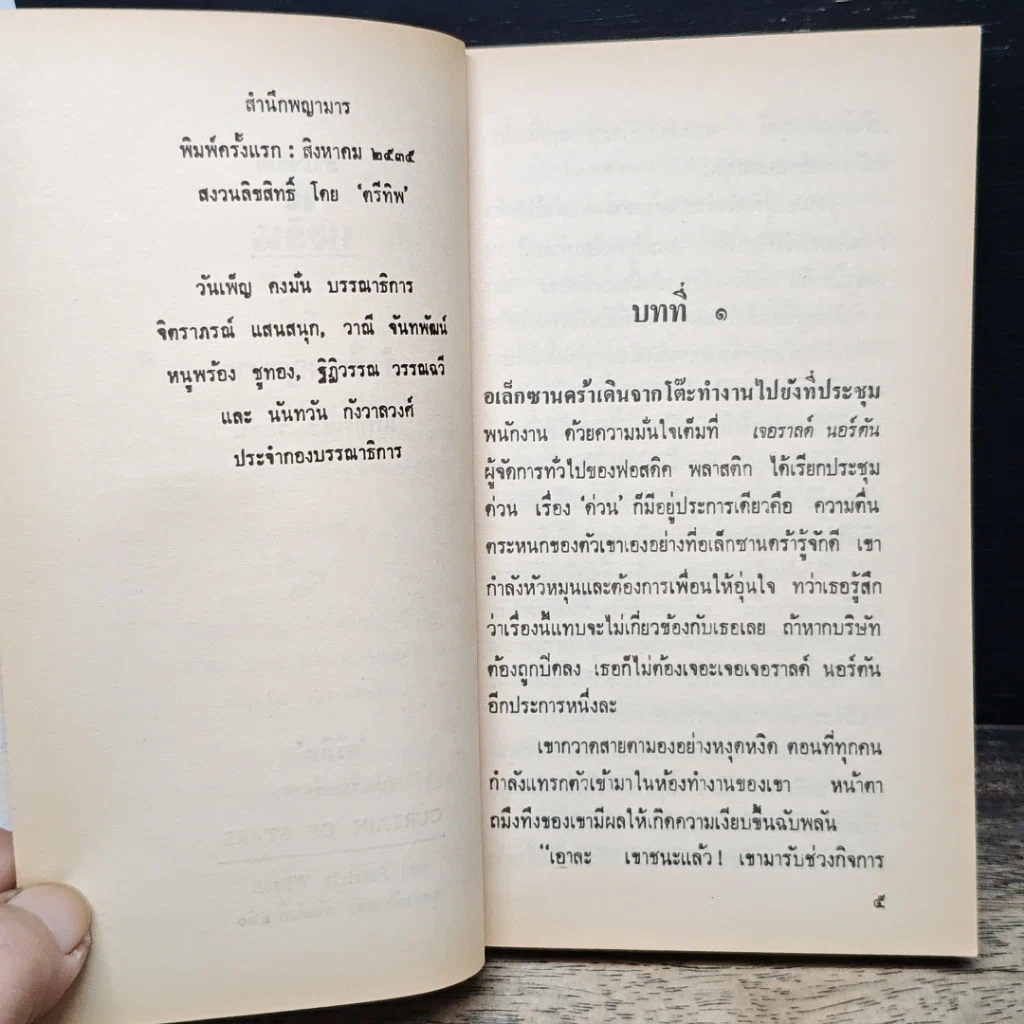 สำนึกพญามาร
พิมพ์ครั้งแรก : สิงหาคม ๒๕๓๕
สงวนลิขสิทธิ์ โดย ‘ตรีทิพ’
วันเพ็ญ คงมั่น บรรณาธิการ
จิตราภรณ์ แสนสนุก, วาณี จันทพัฒน์
หนูพร้อง ชูทอง, ฐิฏิวรรณ วรรณฉวี
และ นันทวัน กังวาลวงศ์
ประจำกองบรรณาธิการ
บทที่ ๑
อเล็กซานดร้าเดินจากโต๊ะทำงานไปยังที่ประชุม
พนักงาน ด้วยความมั่นใจเต็มที่ เจอราลด์ นอร์ตัน
ผู้จัดการทั่วไปของฟอสดิค พลาสติก ได้เรียกประชุม
ด่วน เรื่อง ‘ด่วน’ ก็มีอยู่ประการเดียวคือ ความตื่น
ตระหนกของตัวเขาเองอย่างที่อเล็กซานดร้ารู้จักดี เขา
กำลังหัวหมุนและต้องการเพื่อนให้อุ่นใจ ทว่าเธอรู้สึก
ว่าเรื่องนี้แทบจะไม่เกี่ยวข้องกับเธอเลย ถ้าหากบริษัท
ต้องถูกปิดลง เธอก็ไม่ต้องเจอะเจอเจอราลด์ นอร์ตัน
อีกประการหนึ่งละ
เขากวาดสายตามองอย่างหงุดหงิด ตอนที่ทุกคน
กำลังแทรกตัวเข้ามาในห้องทำงานของเขา หน้าตา
ถมึงทึงของเขามีผลให้เกิดความเงียบขึ้นฉับพลัน
“เอาละ เขาชนะแล้ว! เขามารับช่วงกิจการ
๕